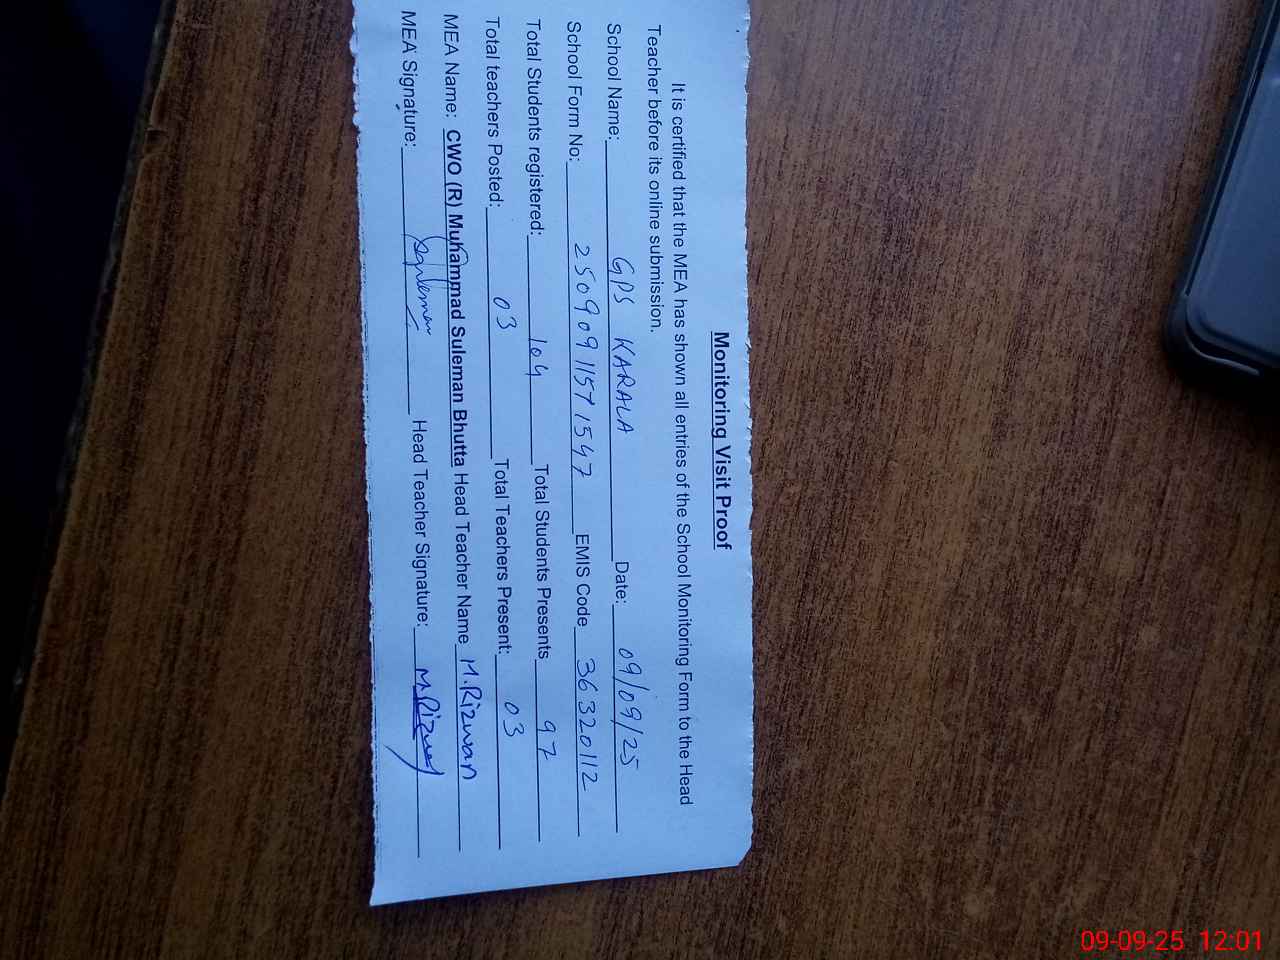 Monitoring Visit Proof
It is certified that the MEA has shown all entries of the School Monitoring Form to the Head
Teacher before its online submission.
School Name: GPS KARALA Date: 09/09/25
School Form No: 25090911571547 EMIS Code 36320112
Total Students registered: 104 Total Students Presents 97
Total teachers Posted: 03 Total Teachers Present: 03
MEA Name: CWO (R) Muhammad Suleman Bhutta Head Teacher Name M.Rizwan
MEA Signature: Suleman Head Teacher Signature: M.Rizwan
09-09-25 12:01